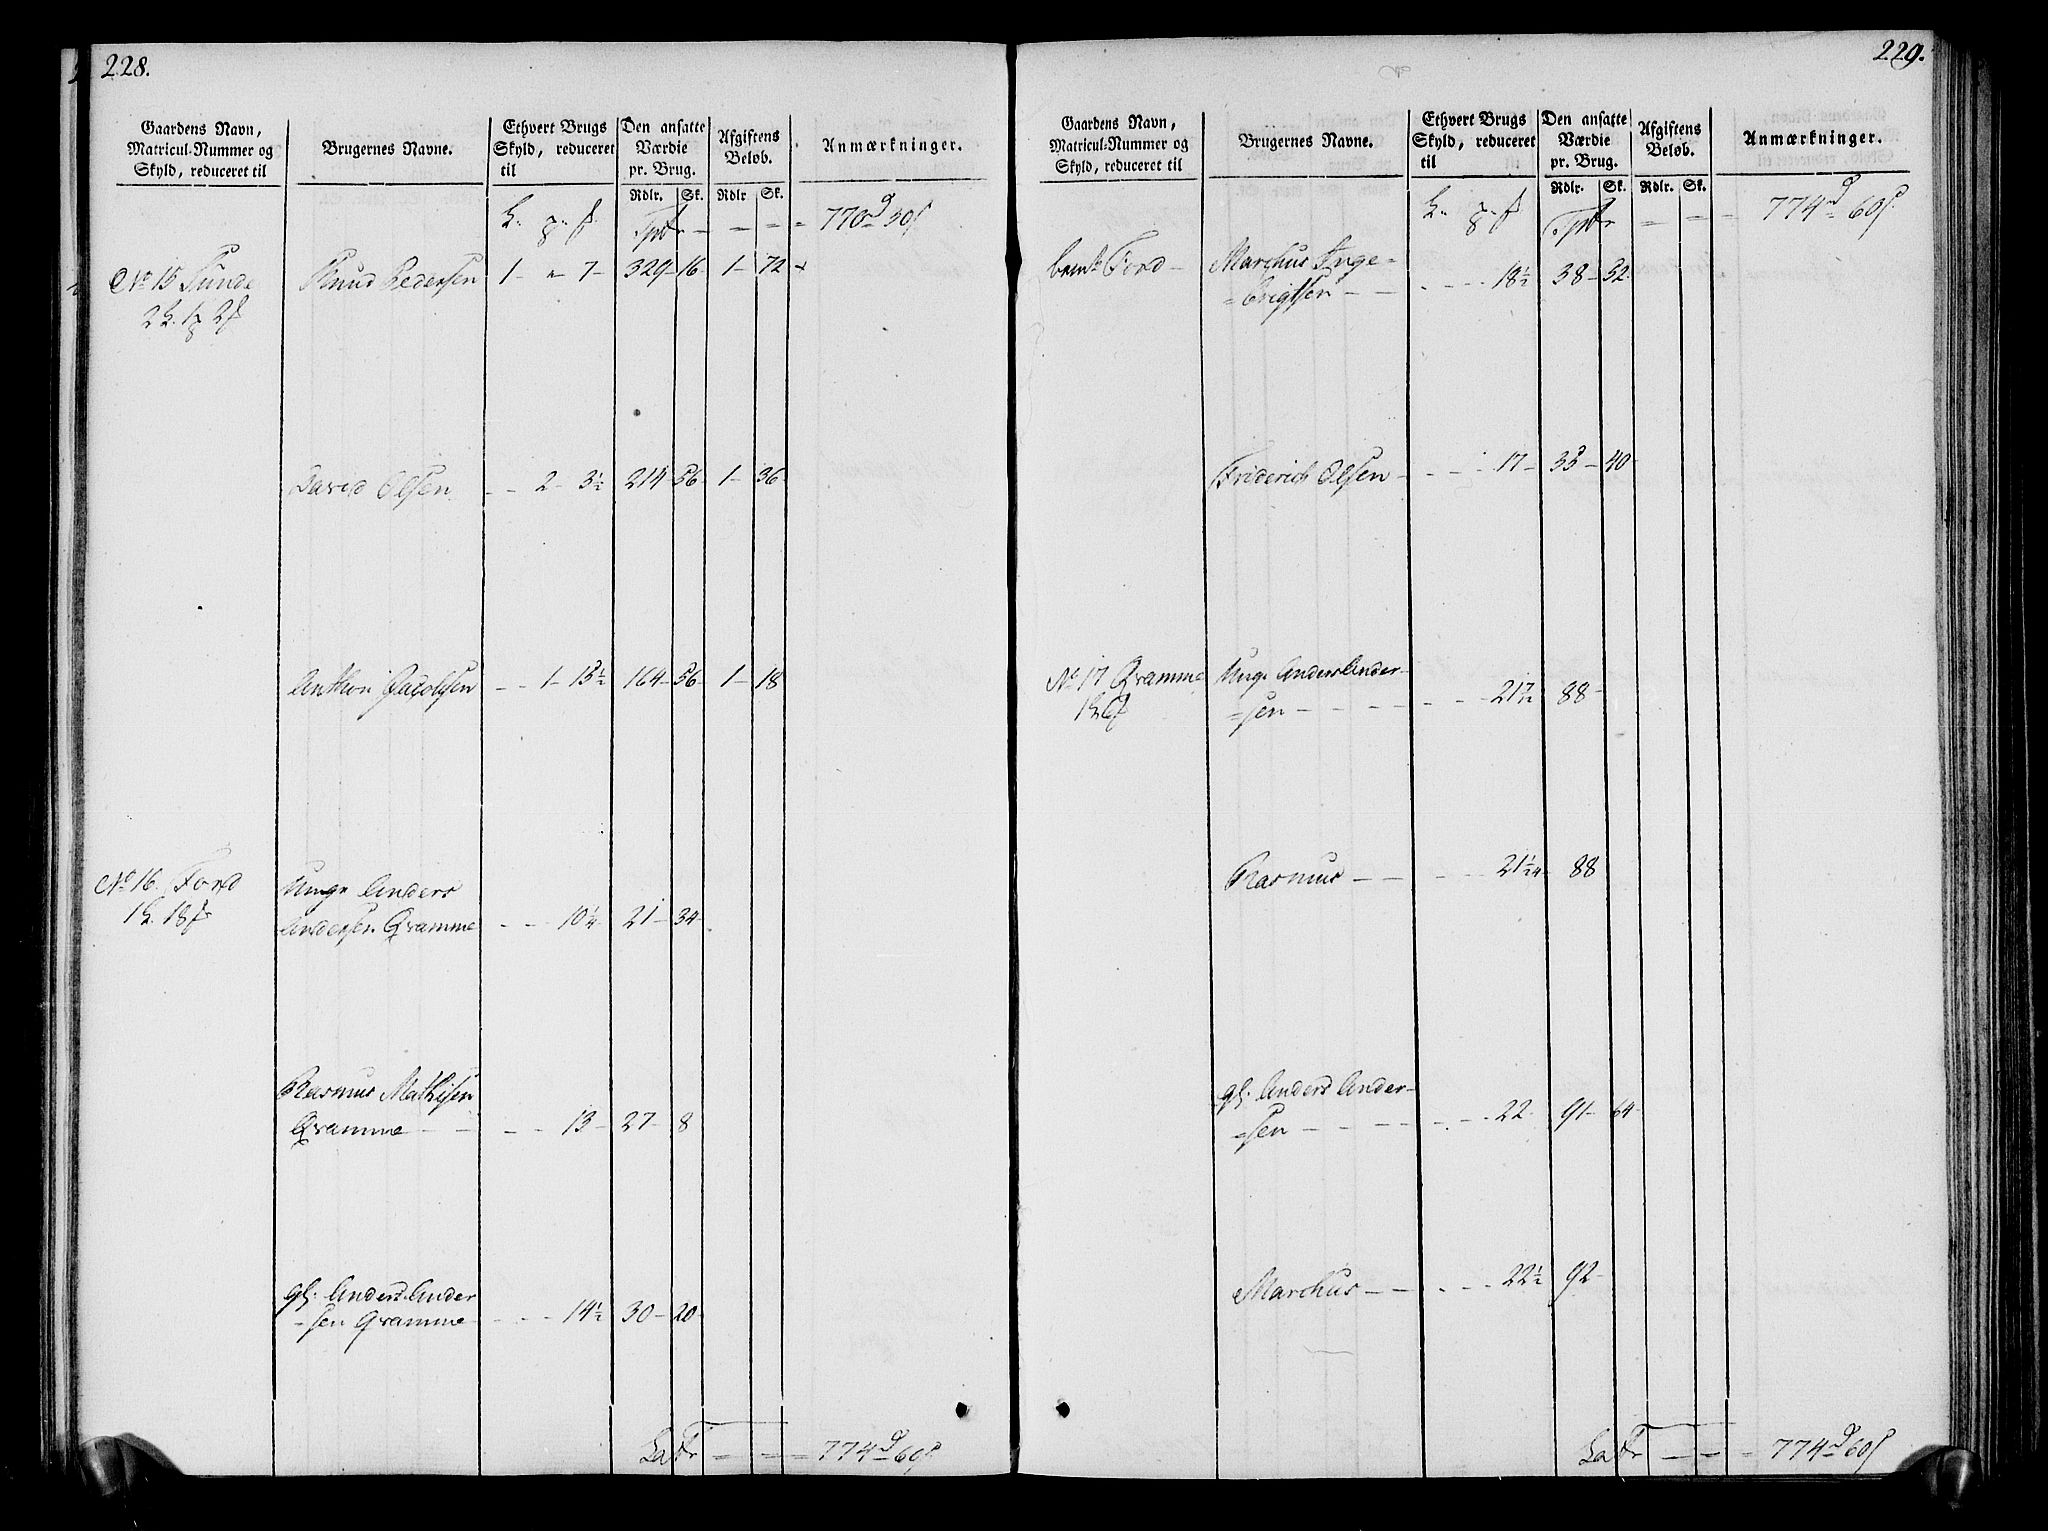 228.
Gaardens Navn,
Matricul-Nummer og
Skyld, reduceret til
Brugernes Navne.
Ethvert Brugs
Skyld, reduceret
til
Den ansatte
Værdie
pr. Brug.
Rdlr. Sk.
Afgiftens
Beløb.
Rdlr Sk.
Anmærkninger.
Tpt 770 50
No 15 Sunde Knud Pedersen 1 - " 7 - 329 - 16 - 1 - 72
David Olsen - - 2 - 3½ 214 - 56 - 1 - 36
Anthon Jacobsen - - 1 - 15½ 164 - 56 - 1 - 18
No 16. Ford Unge Anders
Andersen Gramme - - 10¼ 21 - 34
Rasmus Mathisen
Gramme - - 13 - 27 - 8
gl. Anders Ander
=sen Gramme - - 14½ 30 - 20
Latr 774 60
229.
Gaardens Navn,
Matricul-Nummer og
Skyld, reduceret til
Brugernes Navne.
Ethvert Brugs
Skyld, reduceret
til
Den ansatte
Værdie
pr. Brug.
Rdlr. Sk.
Afgiftens
Beløb.
Rdlr. Sk.
Anmærkninger.
Tpt 774 60
bemte Ford - Marchus Inge=
=brigtsen - - 18½ 38 - 32
Friderich Olsen - - 17 - 35 - 40
No 17 Gramme Unge Anders Ander-
=sen - - 88
Rasmus - - 88
gl. Anders Ander-
=sen - - 22 - 91 - 64
Marchus - - 22½ 92 -
Latr 774 60